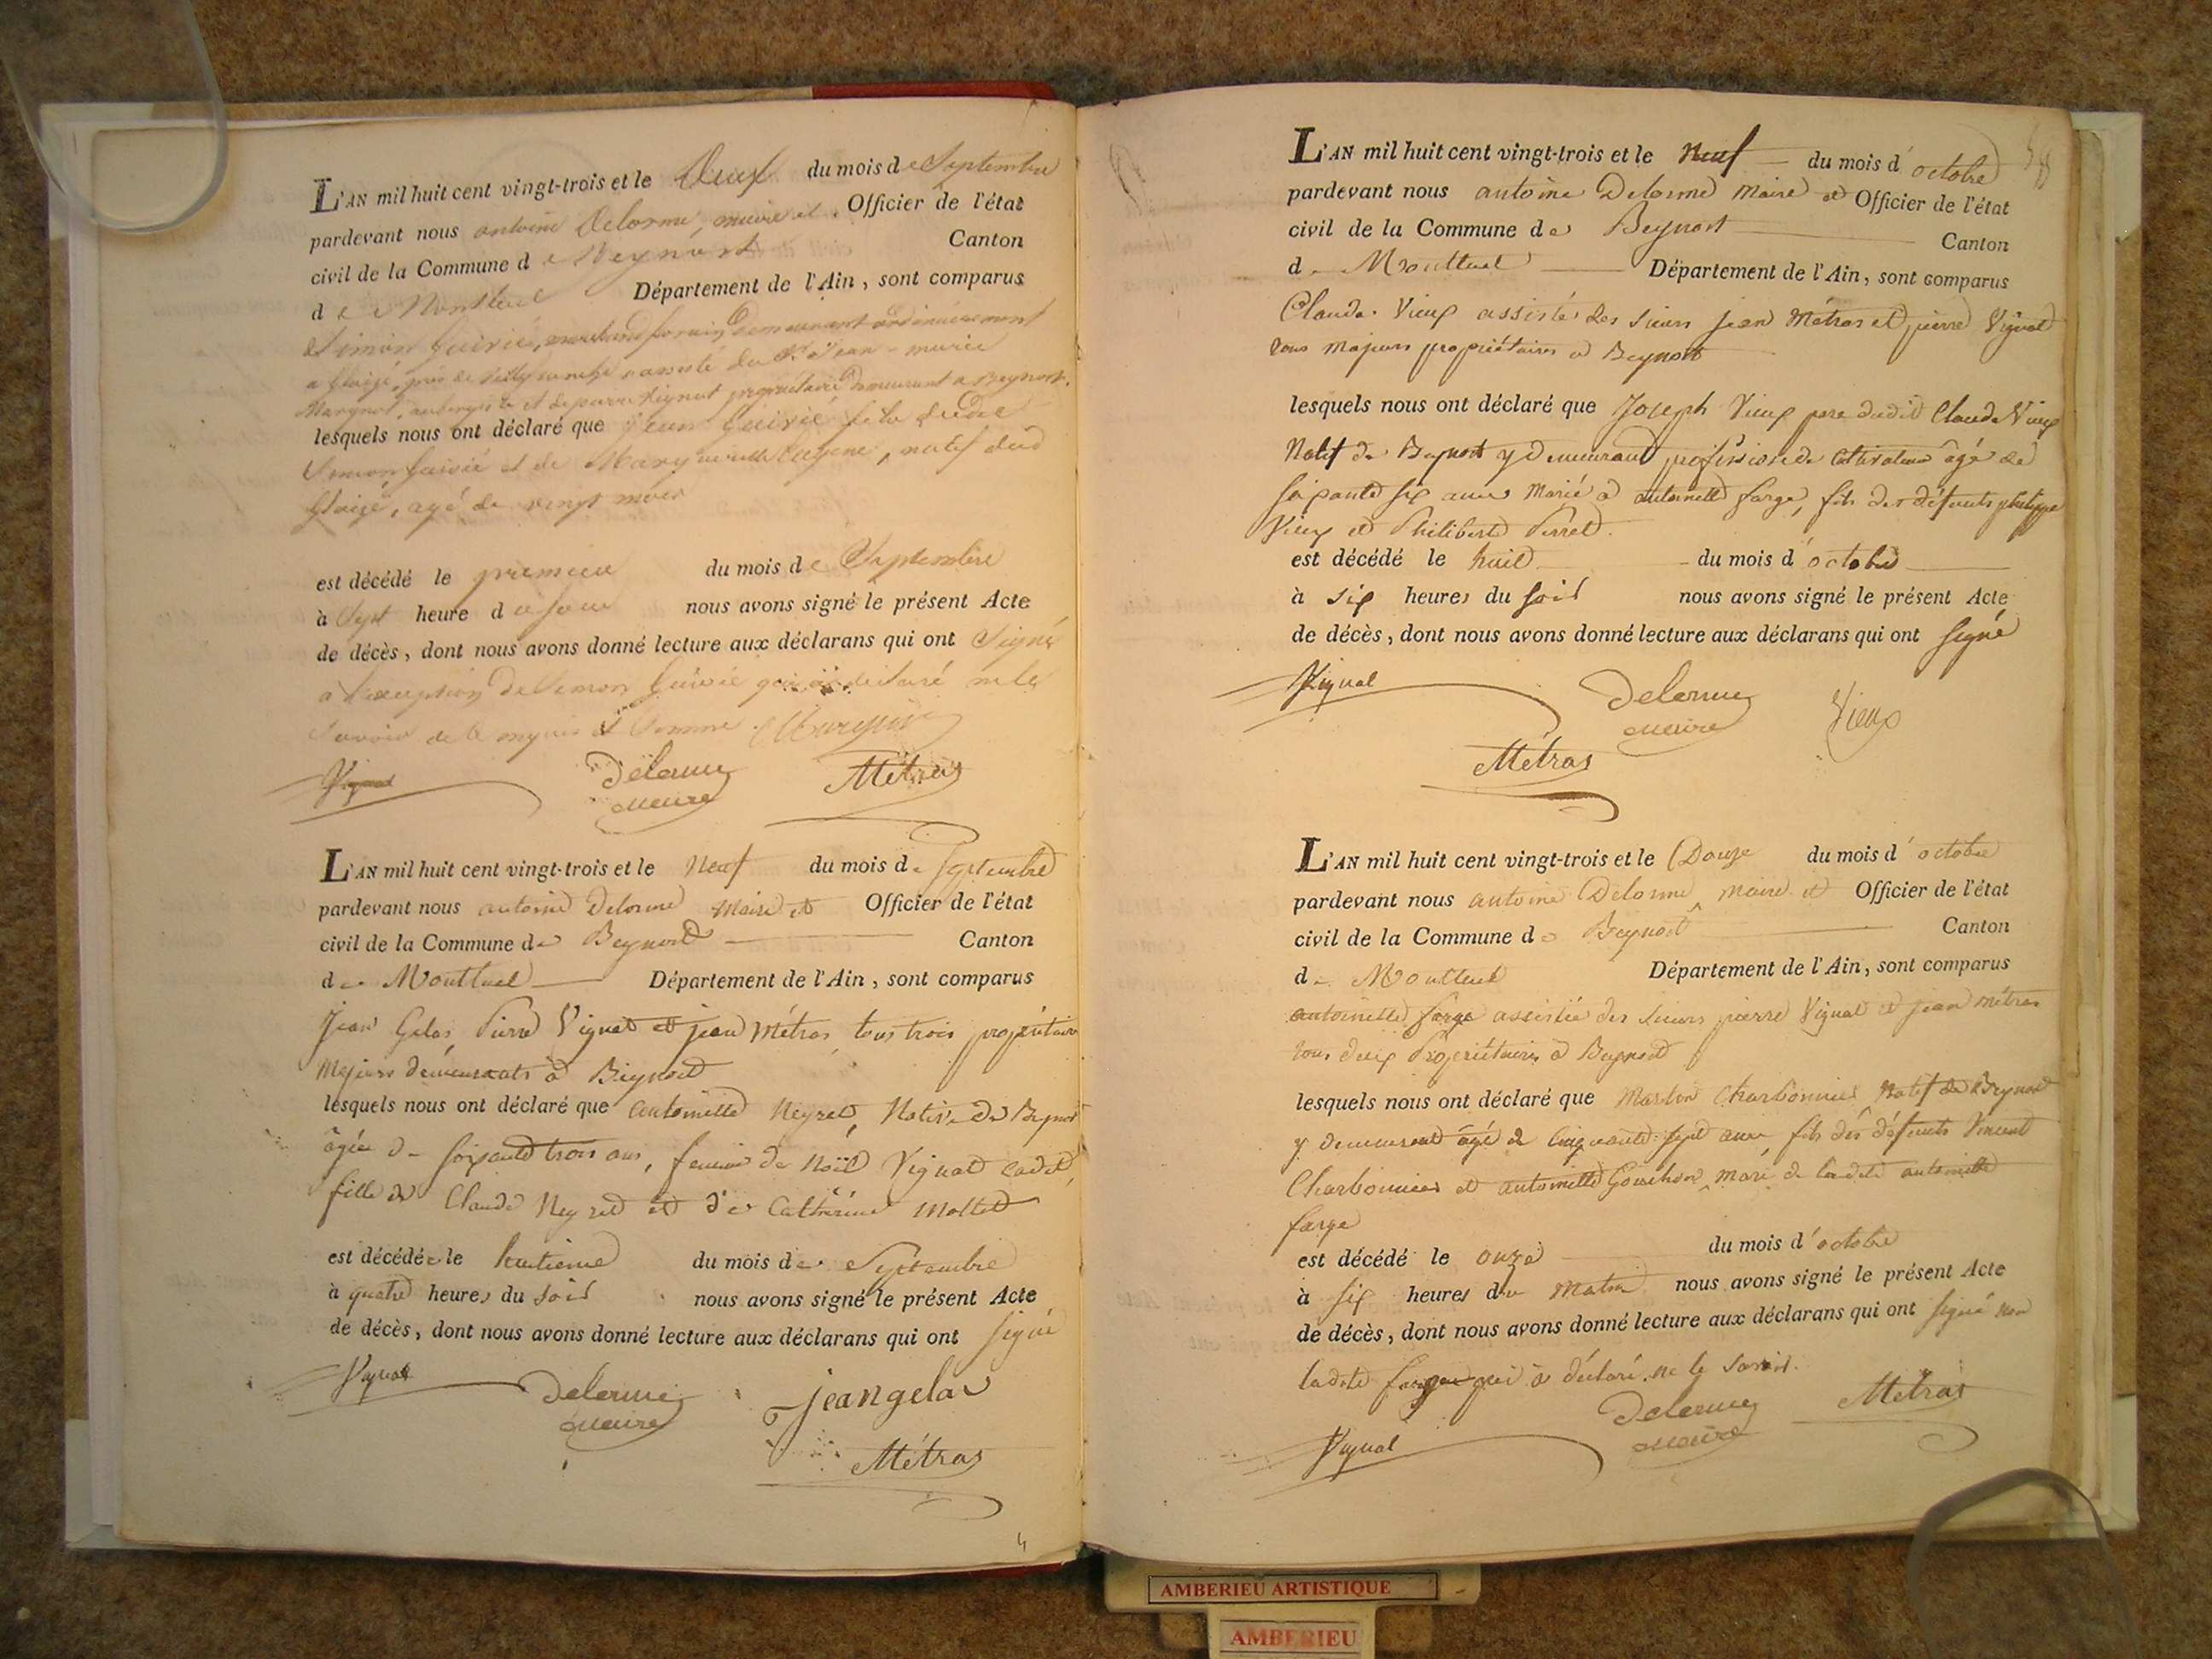 L'AN mil huit cent vingt-trois et le Deux du mois de Septembre
pardevant nous antoine Delorme, maire et Officier de l'état
civil de la Commune de Beynost Canton
de Montluel Département de l'Ain, sont comparus
Simon marchand forain demeurant ordinairement
a près de assisté du Sr Jean-marie
Margnot, aubergiste et de pierre Vignat propriétaire demeurant a Beynost.
lesquels nous ont déclaré que Jean fils dudit
Simon et de Margueritte, natif dud
agé de vingt mois
est décédé le premier du mois de Septembre
à Sept heure du soir nous avons signé le présent Acte
de décès, dont nous avons donné lecture aux déclarans qui ont Signé
a l'exception de Simon qui a déclaré ne le
Savoir de ce enquis et Sommé.
Vignat Delorme Métras
maire
L'AN mil huit cent vingt-trois et le Neuf du mois de Septembre
pardevant nous antoine Delorme Maire et Officier de l'état
civil de la Commune de Beynost Canton
de Montluel Département de l'Ain, sont comparus
Jean Gelas, Pierre Vignat et jean Métras, tous trois propriétaires
Majeurs demeurants à Beynost
lesquels nous ont déclaré que antoinette Neyret, Native de Beynost
âgée de soixante trois ans, femme de Noël Vignat cadet,
fille de Claude Neyret et de Cathérine Mollet
est décédée le huitieme du mois de Septembre
à quatre heures du soir nous avons signé le présent Acte
de décès, dont nous avons donné lecture aux déclarans qui ont signé
Vignat Delorme jean gelas
maire
Métras
L'AN mil huit cent vingt-trois et le Neuf du mois d'octobre
pardevant nous antoine Delorme Maire et Officier de l'état
civil de la Commune de Beynost Canton
de Montluel Département de l'Ain, sont comparus
Claude Vieux assisté des sieurs jean Métras et pierre Vignat
tous Majeurs propriétaires à Beynost
lesquels nous ont déclaré que Joseph Vieux pere dudit Claude Vieux
Natif de Beynost y demeurant profession de Cultivateur âgé de
soixante six ans Marié à antoinette farge, fils des défunts philippe
Vieux et Philiberte Perret.
est décédé le huit du mois d'octobre
à six heures du soir nous avons signé le présent Acte
de décès, dont nous avons donné lecture aux déclarans qui ont signé
Vignat Delorme Vieux
maire
Métras
L'AN mil huit cent vingt-trois et le Douze du mois d'octobre
pardevant nous antoine Delorme, maire et Officier de l'état
civil de la Commune de Beynost Canton
de Montluel Département de l'Ain, sont comparus
antoinette farge assistée des sieurs pierre Vignat et jean métras
tous deux Propriétaires à Beynost
lesquels nous ont déclaré que Charbonnier Natif de Beynost
y demeurant âgé de cinquante sept ans fils des défunts Vincent
Charbonnier et antoinette Gonchon, mari de ladite antoinette
farge
est décédé le onze du mois d'octobre
à six heures du Matin nous avons signé le présent Acte
de décès, dont nous avons donné lecture aux déclarans qui ont signé non
ladite farge qui a déclaré ne le savoir.
Vignat Delorme Métras
maire
AMBERIEU ARTISTIQUE
AMBERIEU